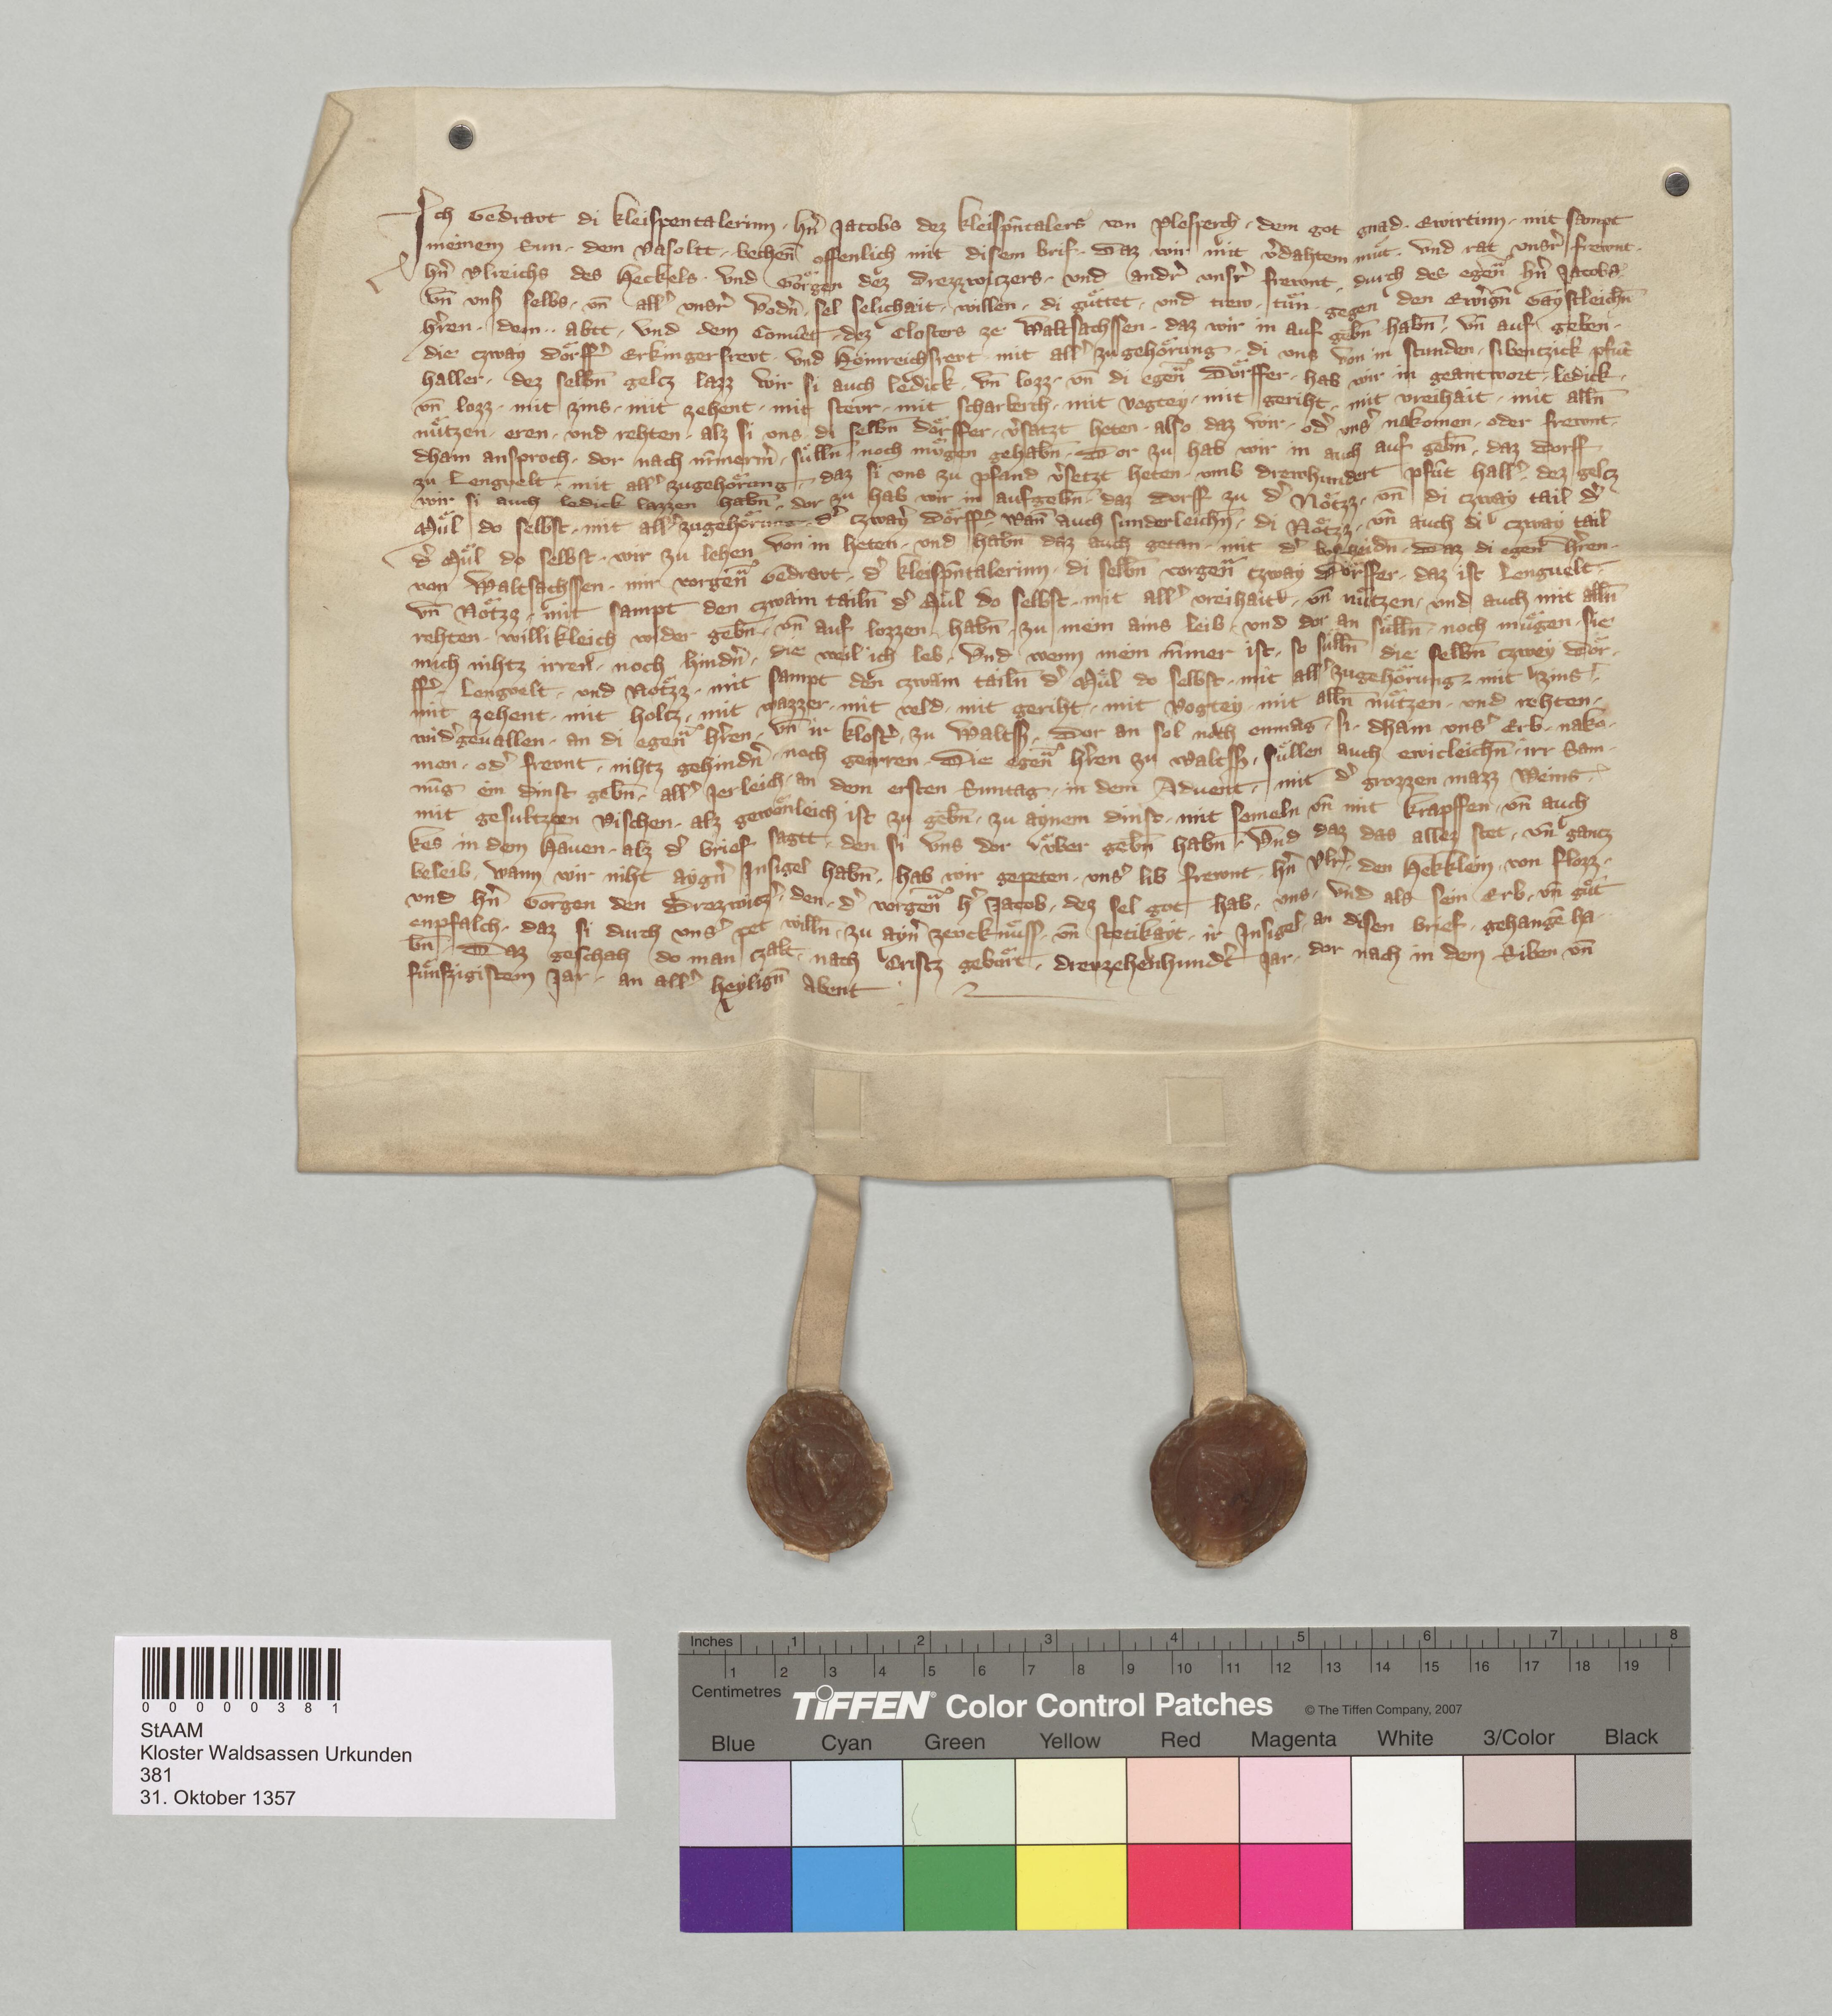 Ich Gedravt di kleispentalerinn · hn̄ Jacobs dez kleispn̄talers von Plesperch · dem got gnad · Ewirtinn · mit sampt
meinem Sun · dem Vasoltt · bechen̄ offenlich mit disem brif · Daz wir mit v̓dahtem mut · vnd rat vnsr̓ frewnt ·
hn̄ Vlreichs des Heckels · vnd Görgen dez Drezzwiczers · vnd andr̓ vnsr̓ frewnt · durch des egen̄ hn̄ Jacobs
vn̄ vns selbs · vn̄ all̓ vnsr̓ vodn̓ · sel selichait · willen · di guttet · vnd trew · tun · gegen den Ewign̄ Gaystleichn̄
hr̓en · dem ·· abtt · vnd dem Conuent · dez Closters ze Waltsachssen · daz wir in auf gebn̄ habn̄ · vn̄ auf geben ·
die czway dörff̓ Erkingersrevt · vnd Könreichsrevt · mit all̓ zugehörung · di vns von in stunden · sibentzick pfūt
haller · dez selbn̄ gelcz lazz wir si auch ledick · vn̄ lozz · vn̄ di egen̄ dörffer · hab wir in geantwort · ledick ·
vn̄ lozz · mit zins · mit zehent · mit stevr · mit scharberch · mit vogtey · mit geriht · mit vreihait · mit alln̄
nützen · eren · vnd rehten · alz si vns di selbn̄ dörffer · v̓satzt heten · also daz wir · od̓ vns̓ nakomen · oder frewnt ·
dham ansproch · dor nach nīmerm̄ · sülln̄ noch mögen gehabn̄ · Dor zu hab wir in auch auf gebn̄ · daz dorff
zu Lengvelt · mit all̓ zugehörung · daz si vns zu pfand v̓setzt heten · vmb drewhundert pfūt hall̓ · dez gelcz
wir si auch ledick lazzen habn̄ · dor zu hab wir in aufgebn̄ · daz dorff zu d̓ Nötzz · vn̄ di czway tail d̓
Mül do selbst · mit all̓ zugehörung · d̓ czway̓ dörff̓ · wan̄ auch sunderleichn̄ · di Nötzz · vn̄ auch di czway tail
d̓ Mül do selbst · wir zu lehen von in heten · vnd habn̄ daz auch getan · mit d̓ bescheidn̄ · Daz di egen̄ hr̓en ·
von Waltsachssen · mir vorgen̄ Gedravt · d̓ kleispn̄talerinn · di selbn̄ vorgen̄ czway Dörffer · daz ist Lengvelt ·
vn̄ Nötzz · mit sampt den czwain tailn̄ d̓ Mül do selbst · mit all̓ vreihait · vn̄ nützen · vnd auch mit alln̄
rehten · willikleich wider gebn̄ · vn̄ auf lozzen habn̄ · zu meim ains leib · vnd dor an sülln̄ · noch mügen · sie
mich nihtz irren · noch hindn̓ · die weil ich leb · Vnd wenn mein nīmer ist · so sülln̄ die selbn̄ czwey dör·
ff̓ · Lengvelt · vnd Nötzz · mit sampt den czwain tailn̄ d̓ Mül do selbst · mit all̓ zugehörung · mit zins ·
mit zehent · mit holtz · mit wazzer · mit veld · mit geriht · mit Vogtey · mit alln̄ nützen · vnd rehten ·
wid̓geuallen · an di egen̄ hr̓en · vn̄ ir klost̓ · zu Waltss · Dor an sol noch enmag · si · dham vns̓ Erb · nakō·
men · od̓ frewnt · nihtz gehindn̓ · noch geirren · Die egen̄ hr̓en zu Waltss · süllen auch ewicleichn̄ · irr Sam·
nūg ein dinst gebn̄ · all̓ Jerleich · an dem ersten Suntag · in dem Advent · mit d̓ grozzen mazz Weins ·
mit gesultzten Vischen · alz gewönleich ist zu gebn̄ · zu aynem dinst · mit semeln vn̄ mit krapffen · vn̄ auch
kes in dem Hauen · alz d̓ brief sagtt · den si vns dor vber gebn̄ habn̄ · Vnd daz das allez stet · vn̄ gantz
beleib · wann wir niht aygn̓ Insigel habn̄ · hab wir gepeten · vns̓ lib frewnt · hn̄ Vlr̓ · den Hekklein · von Flozz ·
vnd hn̄ Görgen den Drezwicz̓ · den · d̓ vorgen̄ h̓ Jacob · dez sel got hab · vns · vnd als sein Erb · vn̄ gut
enpfalch · daz si durch vns̓ pet willn̄ · zu ayn̓ zevcknüss · vn̄ stetikayt · ir Insigel an disen brief · gehangē ha·
bn̄ · Daz geschah do man czalt · nach Cristz geburt · drewzehenhund̓t Jar · dor nach in dem Siben vn̄
funfzigistem Jar · an all̓ heylign̄ Abent
00000381
StAAM
Kloster Waldsassen Urkunden
381
31. Oktober 1357
Inches 1 2 3 4 5 6 7 8
1 2 3 4 5 6 7 8 9 10 11 12 13 14 15 16 17 18 19
Centimetres
TIFFEN® Color Control Patches © The Tiffen Company, 2007
Blue Cyan Green Yellow Red Magenta White 3/Color Black